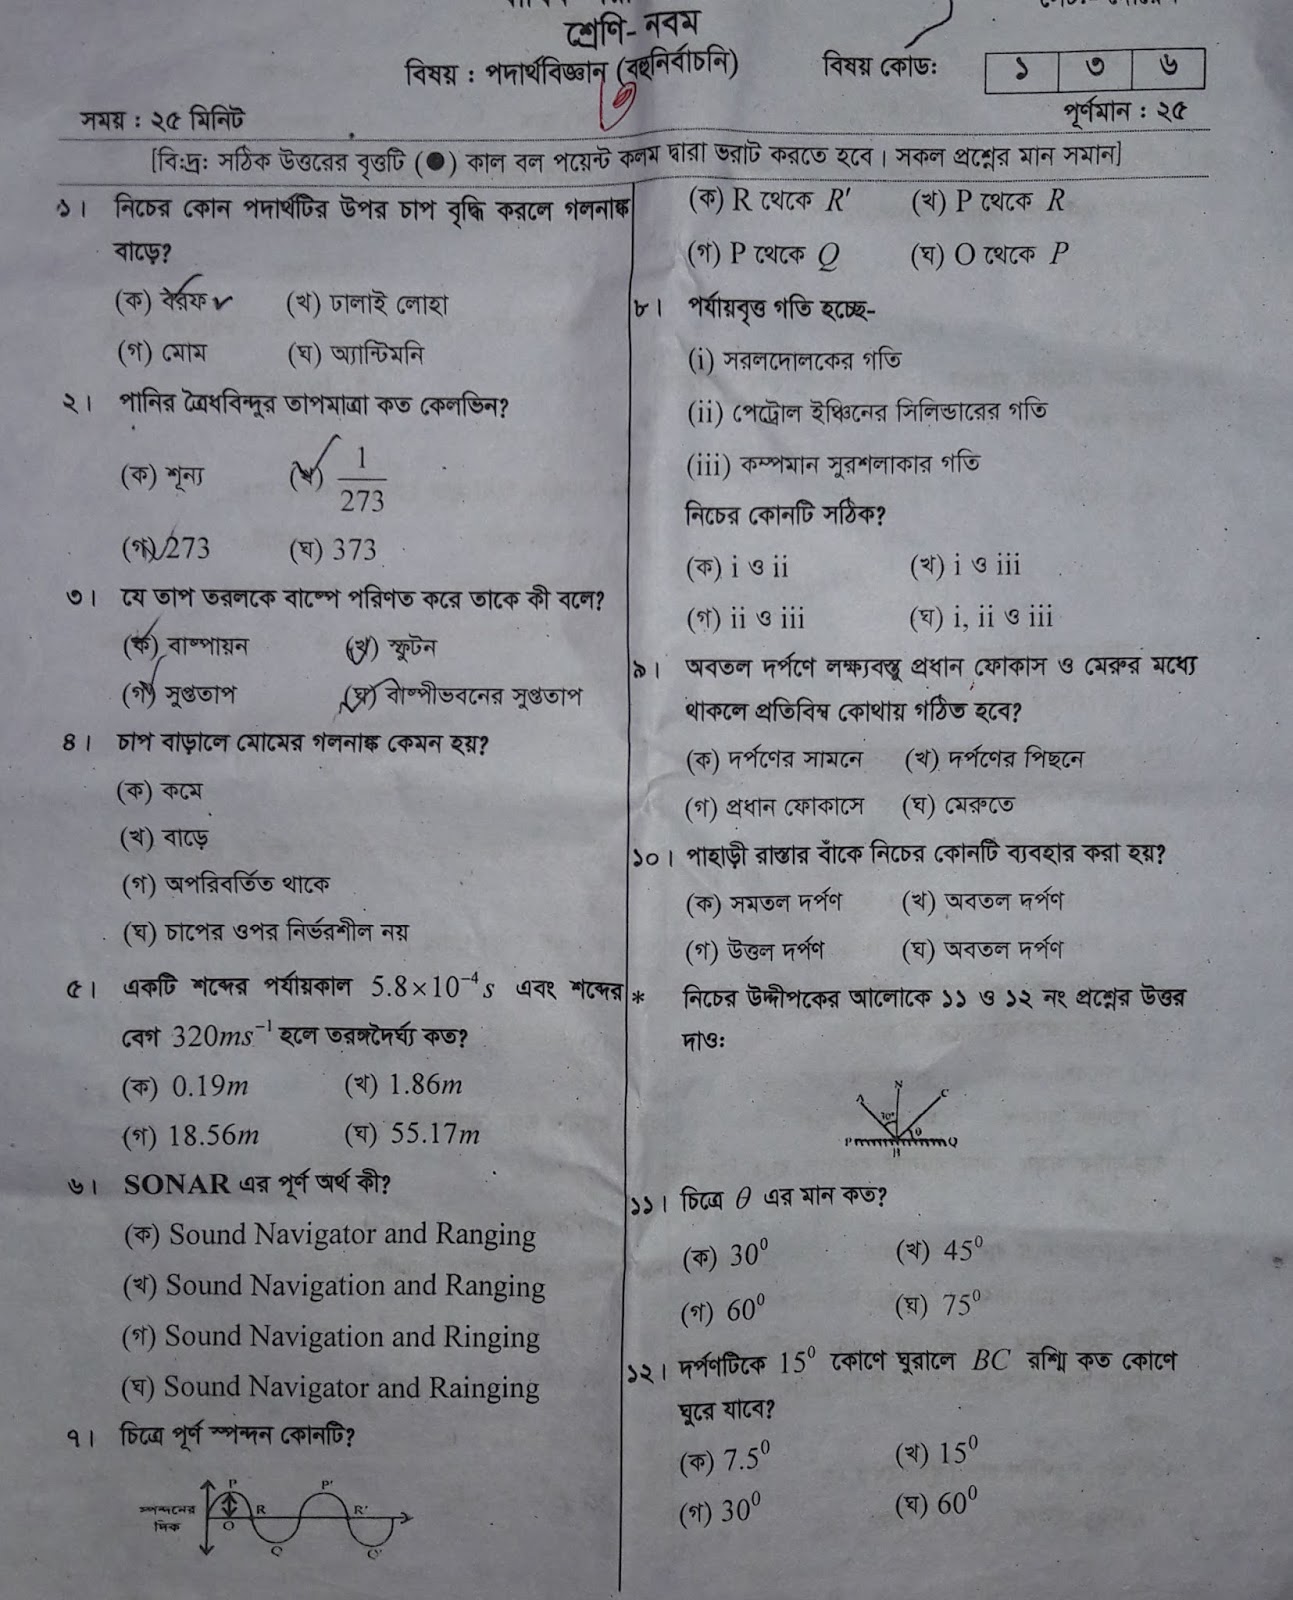 শ্রেণি- নবম
বিষয় : পদার্থবিজ্ঞান (বহুনির্বাচনি)
বিষয় কোড: ১ ৩ ৬
সময় : ২৫ মিনিট
পূর্ণমান : ২৫
[বি:দ্র: সঠিক উত্তরের বৃত্তটি (●) কাল বল পয়েন্ট কলম দ্বারা ভরাট করতে হবে। সকল প্রশ্নের মান সমান]
১। নিচের কোন পদার্থটির উপর চাপ বৃদ্ধি করলে গলনাঙ্ক
বাড়ে?
(ক) বরফ (খ) ঢালাই লোহা
(গ) মোম (ঘ) অ্যান্টিমনি
২। পানির ত্রৈধবিন্দুর তাপমাত্রা কত কেলভিন?
(ক) শূন্য (খ) 1/273
(গ) 273 (ঘ) 373
৩। যে তাপ তরলকে বাষ্পে পরিণত করে তাকে কী বলে?
(ক) বাষ্পায়ন (খ) স্ফুটন
(গ) সুপ্ততাপ (ঘ) বাষ্পীভবনের সুপ্ততাপ
৪। চাপ বাড়ালে মোমের গলনাঙ্ক কেমন হয়?
(ক) কমে
(খ) বাড়ে
(গ) অপরিবর্তিত থাকে
(ঘ) চাপের ওপর নির্ভরশীল নয়
৫। একটি শব্দের পর্যায়কাল 5.8×10⁻⁴ s এবং শব্দের
বেগ 320ms⁻¹ হলে তরঙ্গদৈর্ঘ্য কত?
(ক) 0.19m (খ) 1.86m
(গ) 18.56m (ঘ) 55.17m
৬। SONAR এর পূর্ণ অর্থ কী?
(ক) Sound Navigator and Ranging
(খ) Sound Navigation and Ranging
(গ) Sound Navigation and Ringing
(ঘ) Sound Navigator and Rainging
৭। চিত্রে পূর্ণ স্পন্দন কোনটি?
P P'
স্পন্দনের R R'
দিক O
Q Q'
(ক) R থেকে R' (খ) P থেকে R
(গ) P থেকে Q (ঘ) O থেকে P
৮। পর্যায়বৃত্ত গতি হচ্ছে-
(i) সরলদোলকের গতি
(ii) পেট্রোল ইঞ্চিনের সিলিন্ডারের গতি
(iii) কম্পমান সুরশলাকার গতি
নিচের কোনটি সঠিক?
(ক) i ও ii (খ) i ও iii
(গ) ii ও iii (ঘ) i, ii ও iii
৯। অবতল দর্পণে লক্ষ্যবস্তু প্রধান ফোকাস ও মেরুর মধ্যে
থাকলে প্রতিবিম্ব কোথায় গঠিত হবে?
(ক) দর্পণের সামনে (খ) দর্পণের পিছনে
(গ) প্রধান ফোকাসে (ঘ) মেরুতে
১০। পাহাড়ী রাস্তার বাঁকে নিচের কোনটি ব্যবহার করা হয়?
(ক) সমতল দর্পণ (খ) অবতল দর্পণ
(গ) উত্তল দর্পণ (ঘ) অবতল দর্পণ
* নিচের উদ্দীপকের আলোকে ১১ ও ১২ নং প্রশ্নের উত্তর
দাও:
A N C
θ
P Q
১১। চিত্রে θ এর মান কত?
(ক) 30⁰ (খ) 45⁰
(গ) 60⁰ (ঘ) 75⁰
১২। দর্পণটিকে 15⁰ কোণে ঘুরালে BC রশ্মি কত কোণে
ঘুরে যাবে?
(ক) 7.5⁰ (খ) 15⁰
(গ) 30⁰ (ঘ) 60⁰